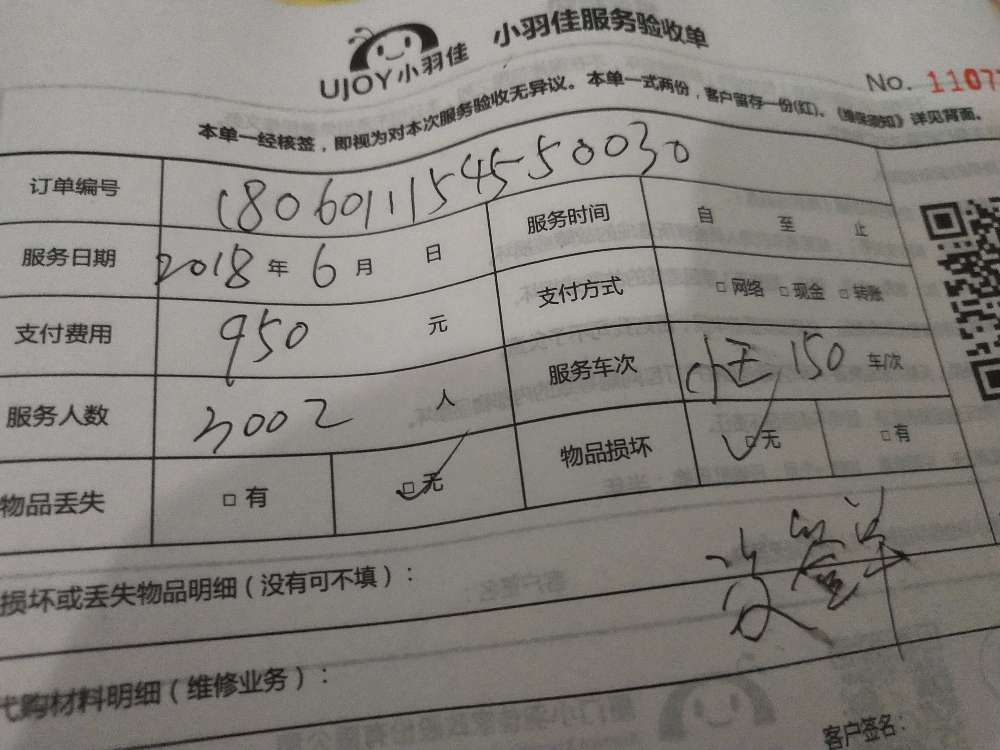 UJOY小羽佳 小羽佳服务验收单
No. 1107
本单一经核签，即视为对本次服务验收无异议。本单一式两份，客户留存一份(红)、《维保须知》详见背面。
订单编号 180601115455​0030
服务日期 2018 年 6 月 日 服务时间 自 至 止
支付费用 950 元 支付方式 □ 网络 □ 现金 □ 转账
服务人数 3002 人 服务车次 小王 150 车/次
物品丢失 □ 有 □ 无 物品损坏 □ 无 □ 有
损坏或丢失物品明细（没有可不填）：
代购材料明细（维修业务）：
客户签名：